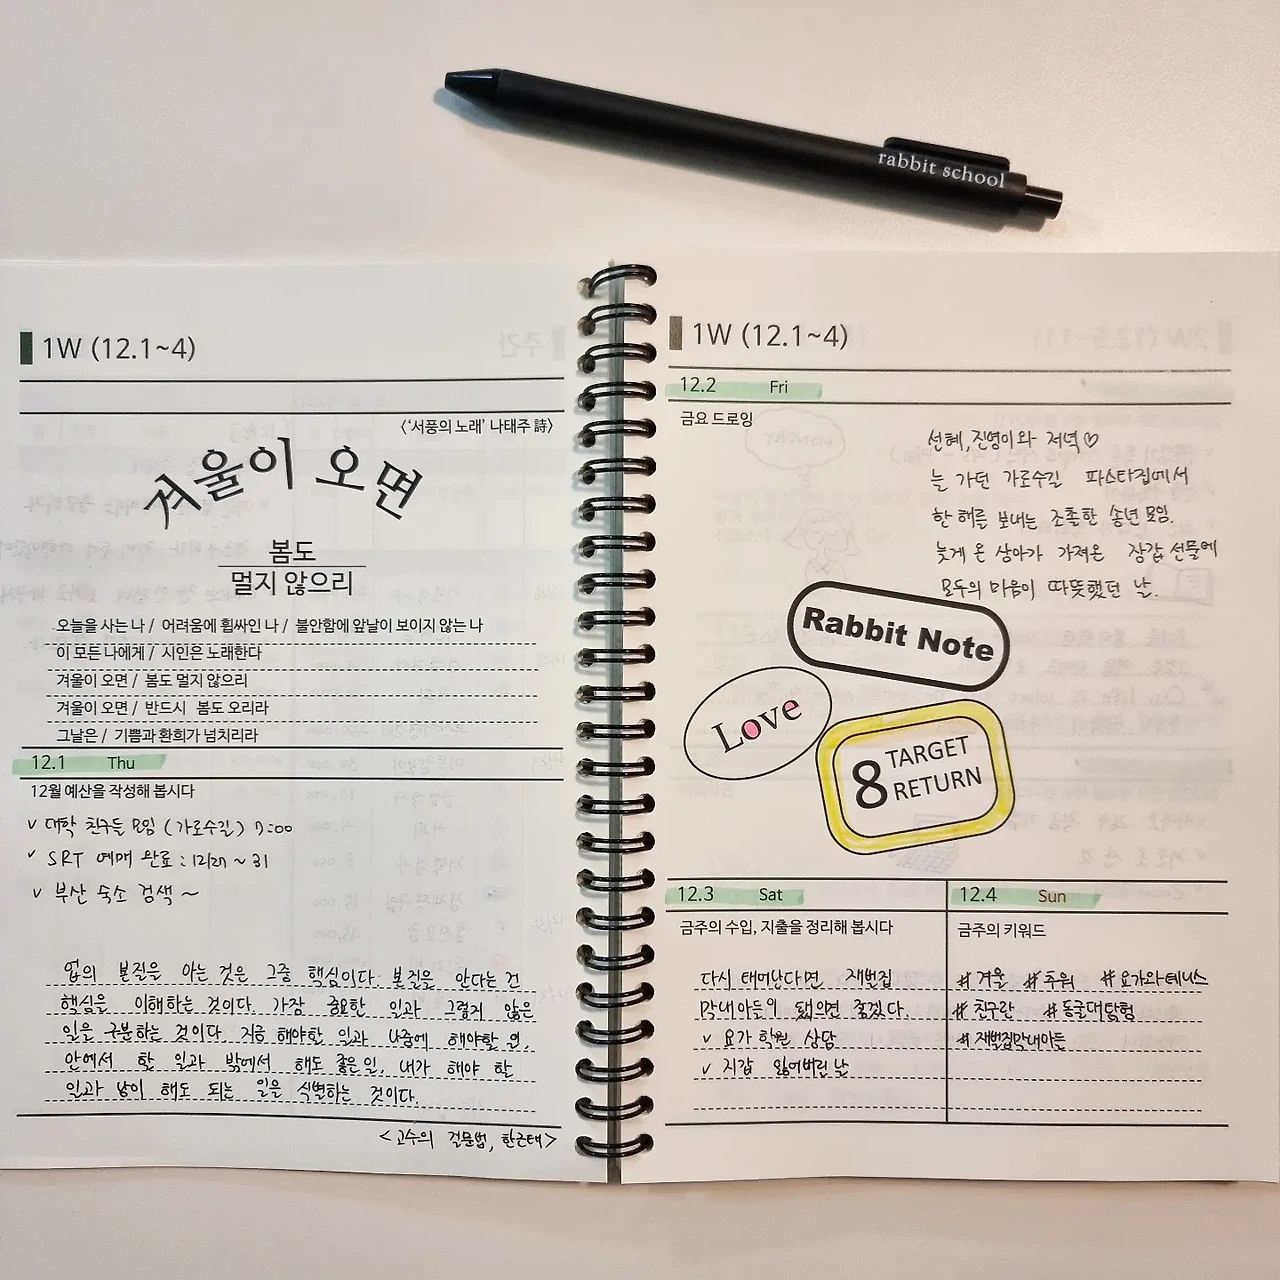 rabbit school
1W (12.1~4)
<‘서풍의 노래’ 나태주 詩>
겨울이 오면
봄도
멀지 않으리
오늘을 사는 나 / 어려움에 휩싸인 나 / 불안함에 앞날이 보이지 않는 나
이 모든 나에게 / 시인은 노래한다
겨울이 오면 / 봄도 멀지 않으리
겨울이 오면 / 반드시 봄도 오리라
그날은 / 기쁨과 환희가 넘치리라
12.1 Thu
12월 예산을 작성해 봅시다
v 대학 친구들 모임 (가로수길) 7:00
v SRT 예매 완료 : 12/27 ~ 31
v 부산 숙소 검색 ~
업의 본질을 아는 것은 그중 핵심이다. 본질을 안다는 건
핵심을 이해하는 것이다. 가장 중요한 일과 그렇지 않은
일을 구분하는 것이다. 지금 해야할 일과 나중에 해야할 일,
안에서 할 일과 밖에서 해도 좋은 일, 내가 해야 할
일과 남이 해도 되는 일을 식별하는 것이다.
<고수의 질문법, 한근태>
1W (12.1~4)
12.2 Fri
금요 드로잉
선혜, 진영이와 저녁♡
늘 가던 가로수길 파스타집에서
한 해를 보내는 조촐한 송년 모임.
늦게 온 상아가 가져온 장갑 선물에
모두의 마음이 따뜻했던 날.
Rabbit Note
Love
8 TARGET
RETURN
12.3 Sat
금주의 수입, 지출을 정리해 봅시다
다시 태어난다면 재벌집
막내아들이 됐으면 좋겠다.
v 요가 학원 상담
v 지갑 잃어버린 날
12.4 Sun
금주의 키워드
#겨울 #추위 #요가와테니스
#친구란 #동굴대탐험
#재벌집막내아들